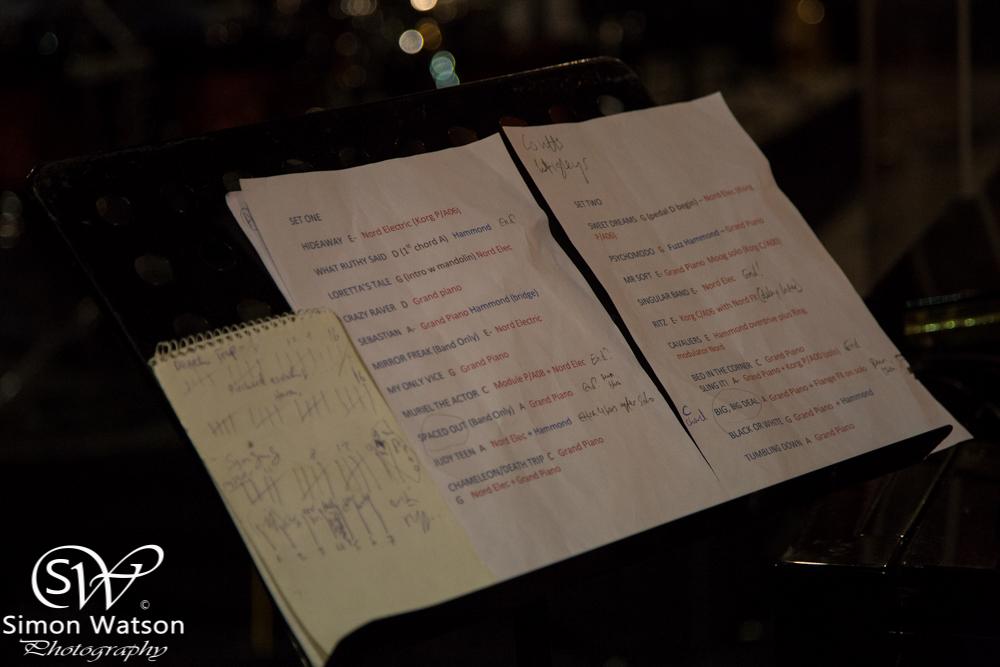 SET ONE
HIDEAWAY E- Nord Electric (Korg P/A06)
WHAT RUTHY SAID D (1st chord A) Hammond End
LORETTA'S TALE G (intro w mandolin) Nord Elec
CRAZY RAVER D Grand piano
SEBASTIAN A- Grand Piano Hammond (bridge)
MIRROR FREAK (Band Only) E- Nord Electric
MY ONLY VICE G Grand Piano
MURIEL THE ACTOR C Module P/A08 + Nord Elec End
SPACED OUT (Band Only) A Grand Piano
JUDY TEEN A Nord Elec + Hammond
CHAMELEON/DEATH TRIP C Grand Piano
G Nord Elec + Grand Piano
SET TWO
SWEET DREAMS G (pedal D begin) – Nord Elec (Korg
P/A06)
PSYCHOMODO G Fuzz Hammond – Grand Piano
MR SOFT E- Grand Piano Moog solo (Korg C/A00)
SINGULAR BAND E- Nord Elec End!
RITZ E- Korg C/A06 with Nord FX
CAVALIERS E Hammond overdrive plus Ring
modulator Nord
BED IN THE CORNER C Grand Piano
SLING IT! A- Grand Piano + Korg P/A00 (solo) End
C
End
BIG, BIG DEAL A Grand Piano + Flange FX on solo
BLACK OR WHITE G Grand Piano + Hammond
TUMBLING DOWN A Grand Piano
Death Trip
SW
©
Simon Watson
Photography